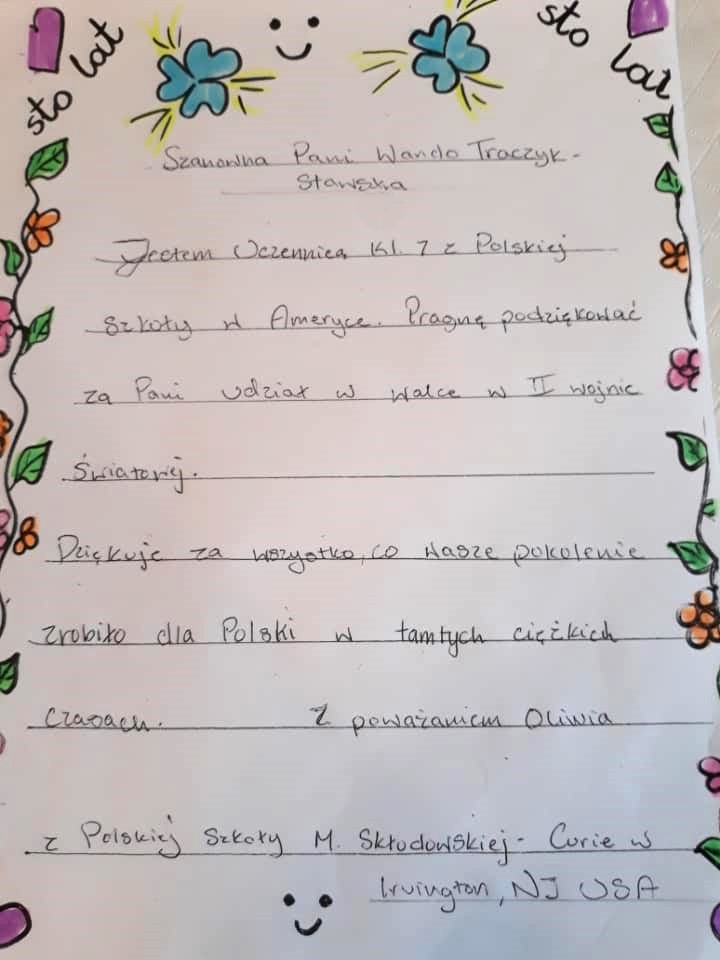 sto lat
sto lat
Szanowna Pani Wando Traczyk-
Stawska
Jestem Uczennicą kl. 7 z Polskiej
szkoły w Ameryce. Pragnę podziękować
za Pani udział w walce w II wojnie
Światowej.
Dziękuje za wszystko, co Wasze pokolenie
zrobiło dla Polski w tamtych ciężkich
czasach. Z poważaniem Oliwia
z Polskiej Szkoły M. Skłodowskiej-Curie w
Irvington, NJ USA